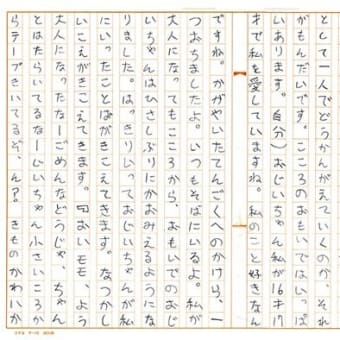 として一人でどうかんがえていくのが、それ
がもんだいです。こころのおもいではいっぱ
いあります。自分)おじいちゃん私が16才1ヶ
才で私を愛していますね。私のこと好きなん
ですね。かがやいたてんごくへのかけら、一
つおちましたよ。いつもそばにいるよ。私が
大人になってもこころから、おもいでのおじ
いちゃんはひさしぶりにかおみえるようにな
りました。はっきりいっておじいちゃんが私
にいったことばがきこえてきます。なつかし
いこえがきこえてきます。「おいモモ、よう
大人になったなーごめんなどうじゃ、ちゃん
とはたらいてるなーじいちゃん小さいころか
らテープきいてるぞ、ん？きものかわいいか